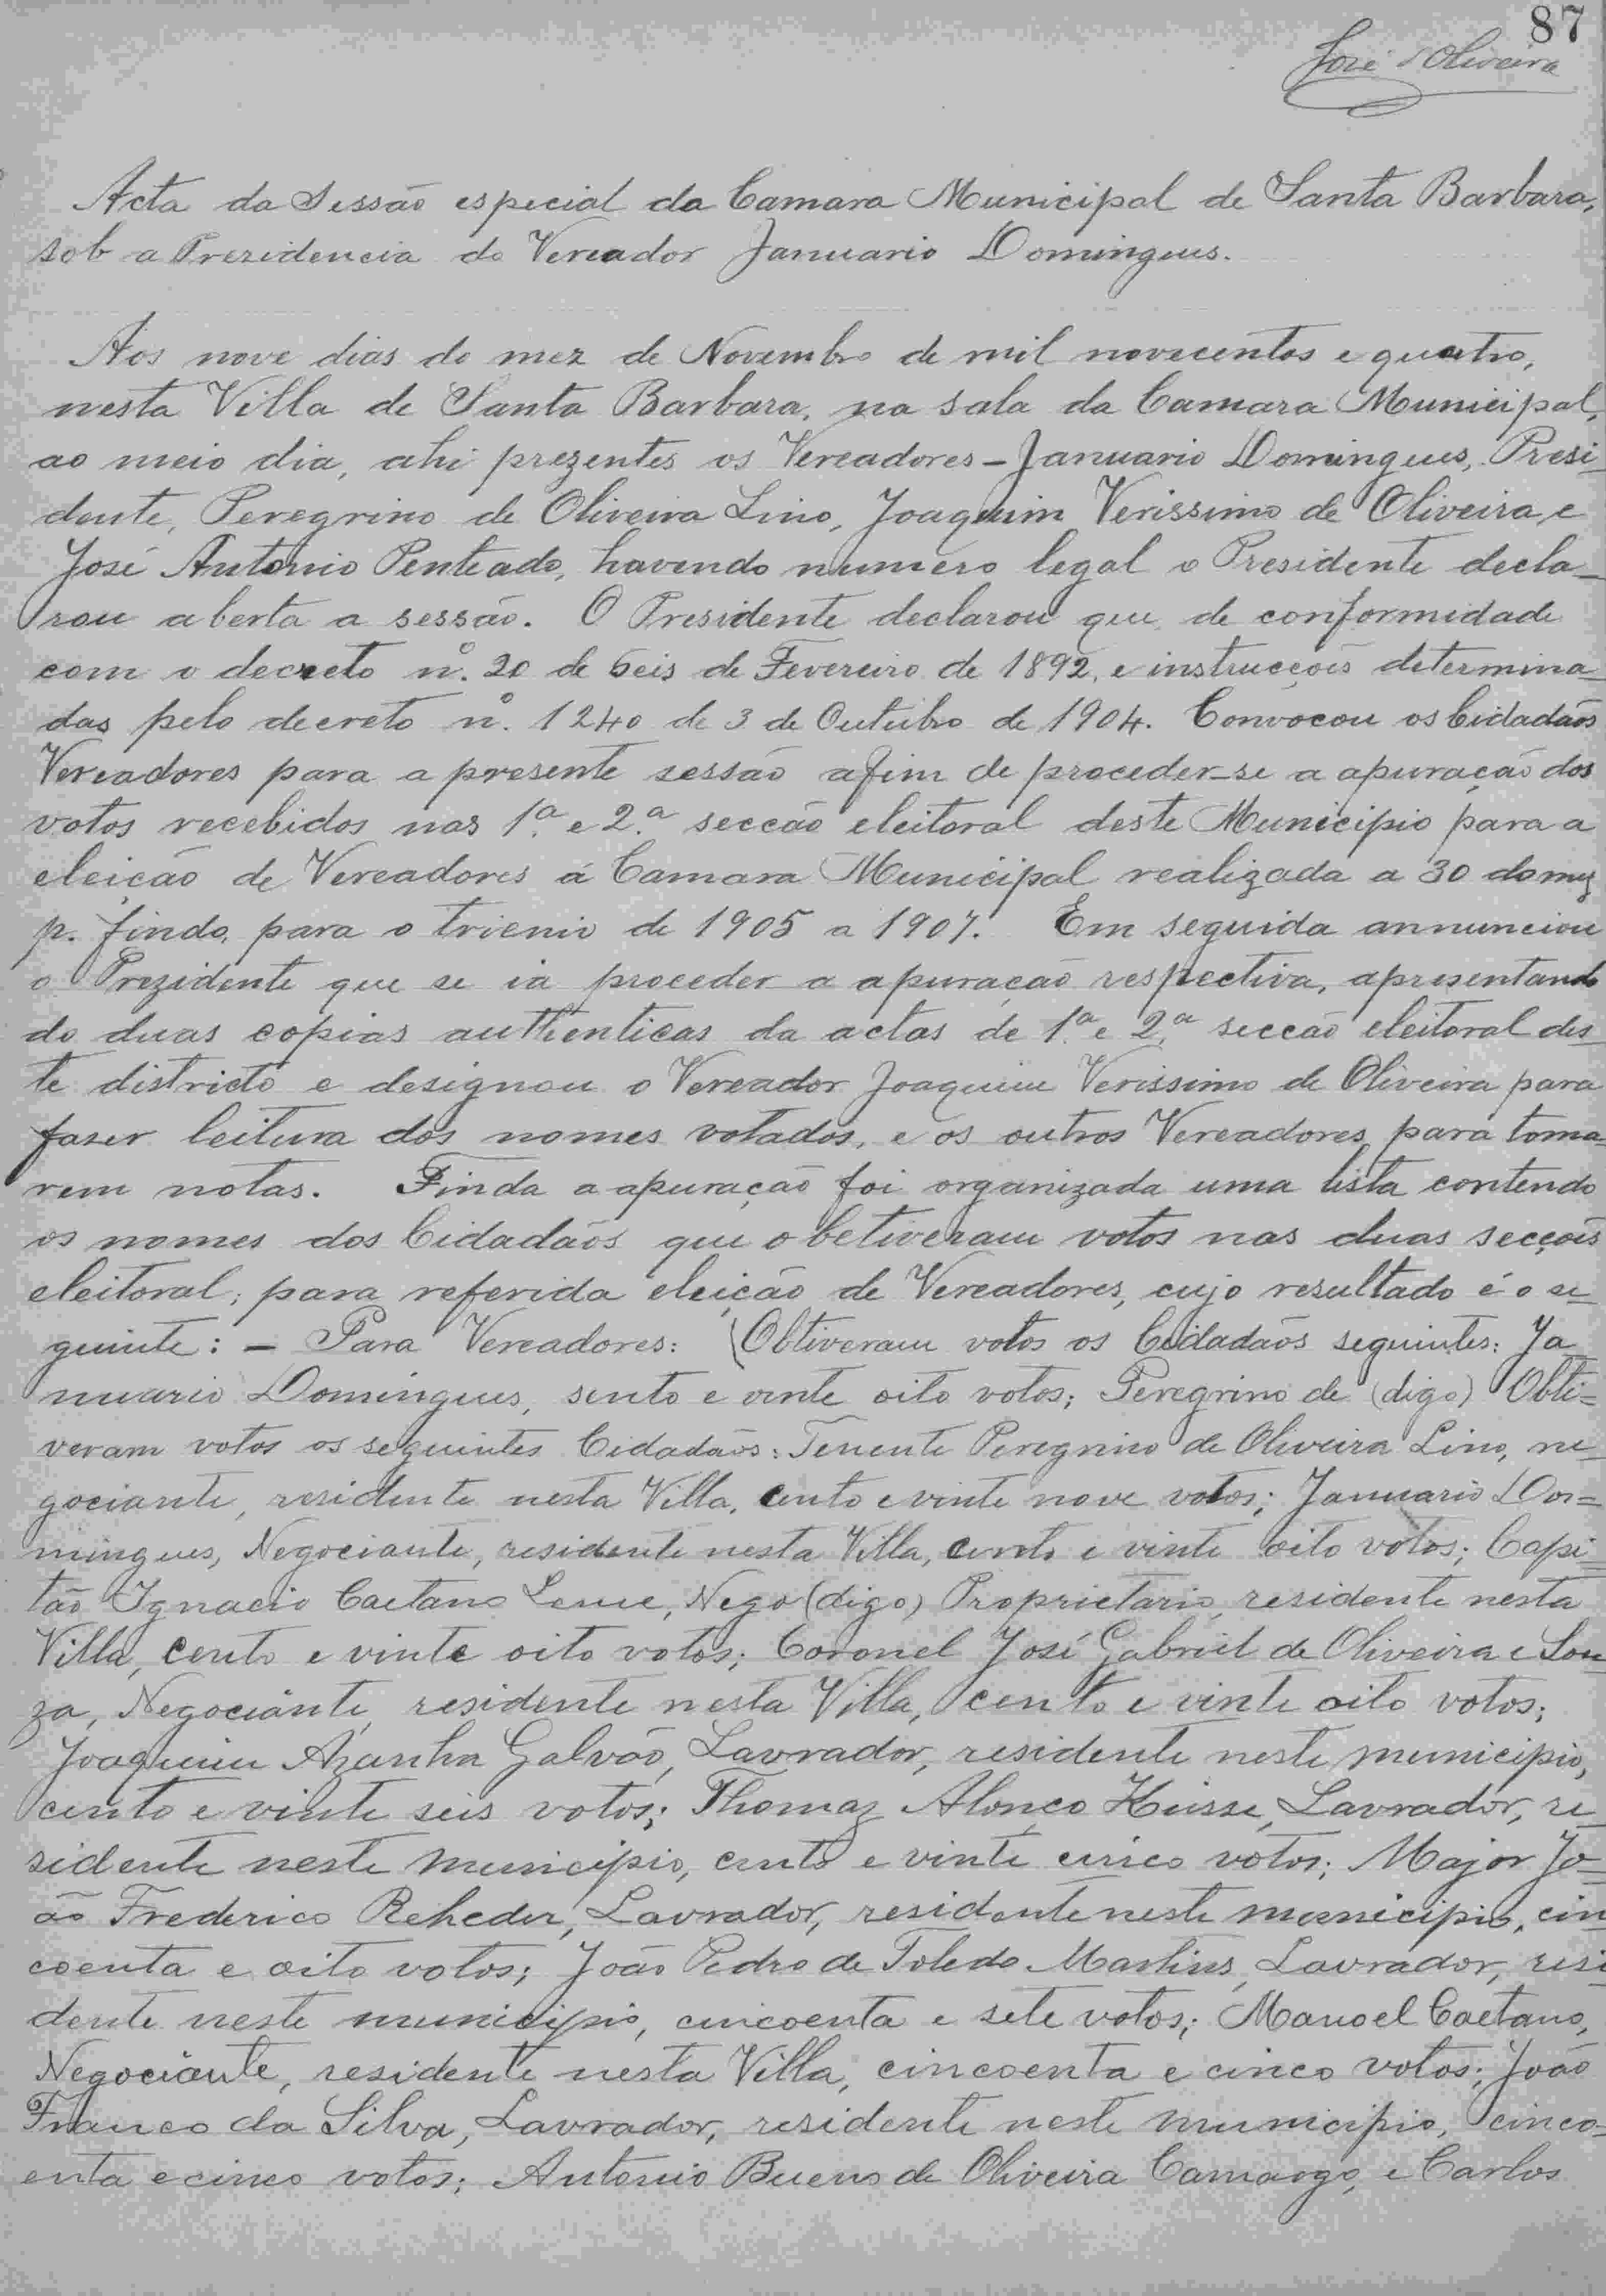 87
José d'Oliveira
Acta da Sessão especial da Camara Municipal de Santa Barbara,
sob a Prezidencia do Vereador Januario Domingues.
Aos nove dias do mez de Novembro de mil novecentos e quatro,
nesta Villa de Santa Barbara, na sala da Camara Municipal,
ao meio dia, ahi prezentes os Vereadores - Januario Domingues, Presi-
dente, Peregrino de Oliveira Lino, Joaquim Verissimo de Oliveira e
José Antonio Penteado, havendo numero legal o Presidente decla-
rou aberta a sessão. O Presidente declarou que de conformidade
com o decreto nº. 20 de seis de Fevereiro de 1892, e instrucções determina-
das pelo decreto nº. 1240 de 3 de Outubro de 1904. Convocou os Cidadãos
Vereadores para a presente sessão afim de proceder-se a apuração dos
votos recebidos nas 1ª. e 2.ª secção eleitoral deste Municipio para a
eleição de Vereadores á Camara Municipal realizada a 30 do mez
p. findo, para o trienio de 1905 a 1907. Em seguida annunciou
o Prezidente que se ia proceder a apuração respectiva, apresentando
do duas copias authenticas da actas de 1ª. e 2.ª secção eleitoral des-
te districto e designou o Vereador Joaquim Verissimo de Oliveira para
faser leitura dos nomes votados, e os outros Vereadores para toma-
rem notas. Finda a apuração foi organizada uma lista contendo
os nomes dos Cidadãos que obetiveram votos nas duas secções
eleitoral; para referida eleição de Vereadores, cujo resultado é o se-
guinte: - Para Vereadores: (Obtiveram votos os Cidadãos seguintes: Ja
nuario Domingues, sento e vinte oito votos; Peregrino de (digo) Obti=
veram votos os seguintes Cidadãos: Tenente Peregrino de Oliveira Lino, ne-
gociante, residente nesta Villa, cento e vinte nove votos; Januario Do=
mingues, Negociante, residente nesta Villa, cento e vinte oito votos; Capi=
tão Ignacio Caetano Leme, Nego (digo) Proprietario, residente nesta
Villa, cento e vinte oito votos; Coronel José Gabriel de Oliveira e Sou-
za, Negociante, residente nesta Villa, cento e vinte oito votos;
Joaquim Aranha Galvão, Lavrador, residente neste municipio,
cento e vinte seis votos; Thomaz Alonço Keisse, Lavrador, re-
sidente neste municipio, cento e vinte cinco votos; Major Jo=
ão Frederico Reheder, Lavrador, residente neste municipio, cin
coenta e oito votos; João Pedro de Toledo Martins, Lavrador, resi
dente neste municipio, cincoenta e sete votos; Manoel Caetano,
Negociante, residente nesta Villa, cincoenta e cinco votos; João
Franco da Silva, Lavrador, residente neste municipio, cinco-
enta e cinco votos; Antonio Bueno de Oliveira Camargo, e Carlos